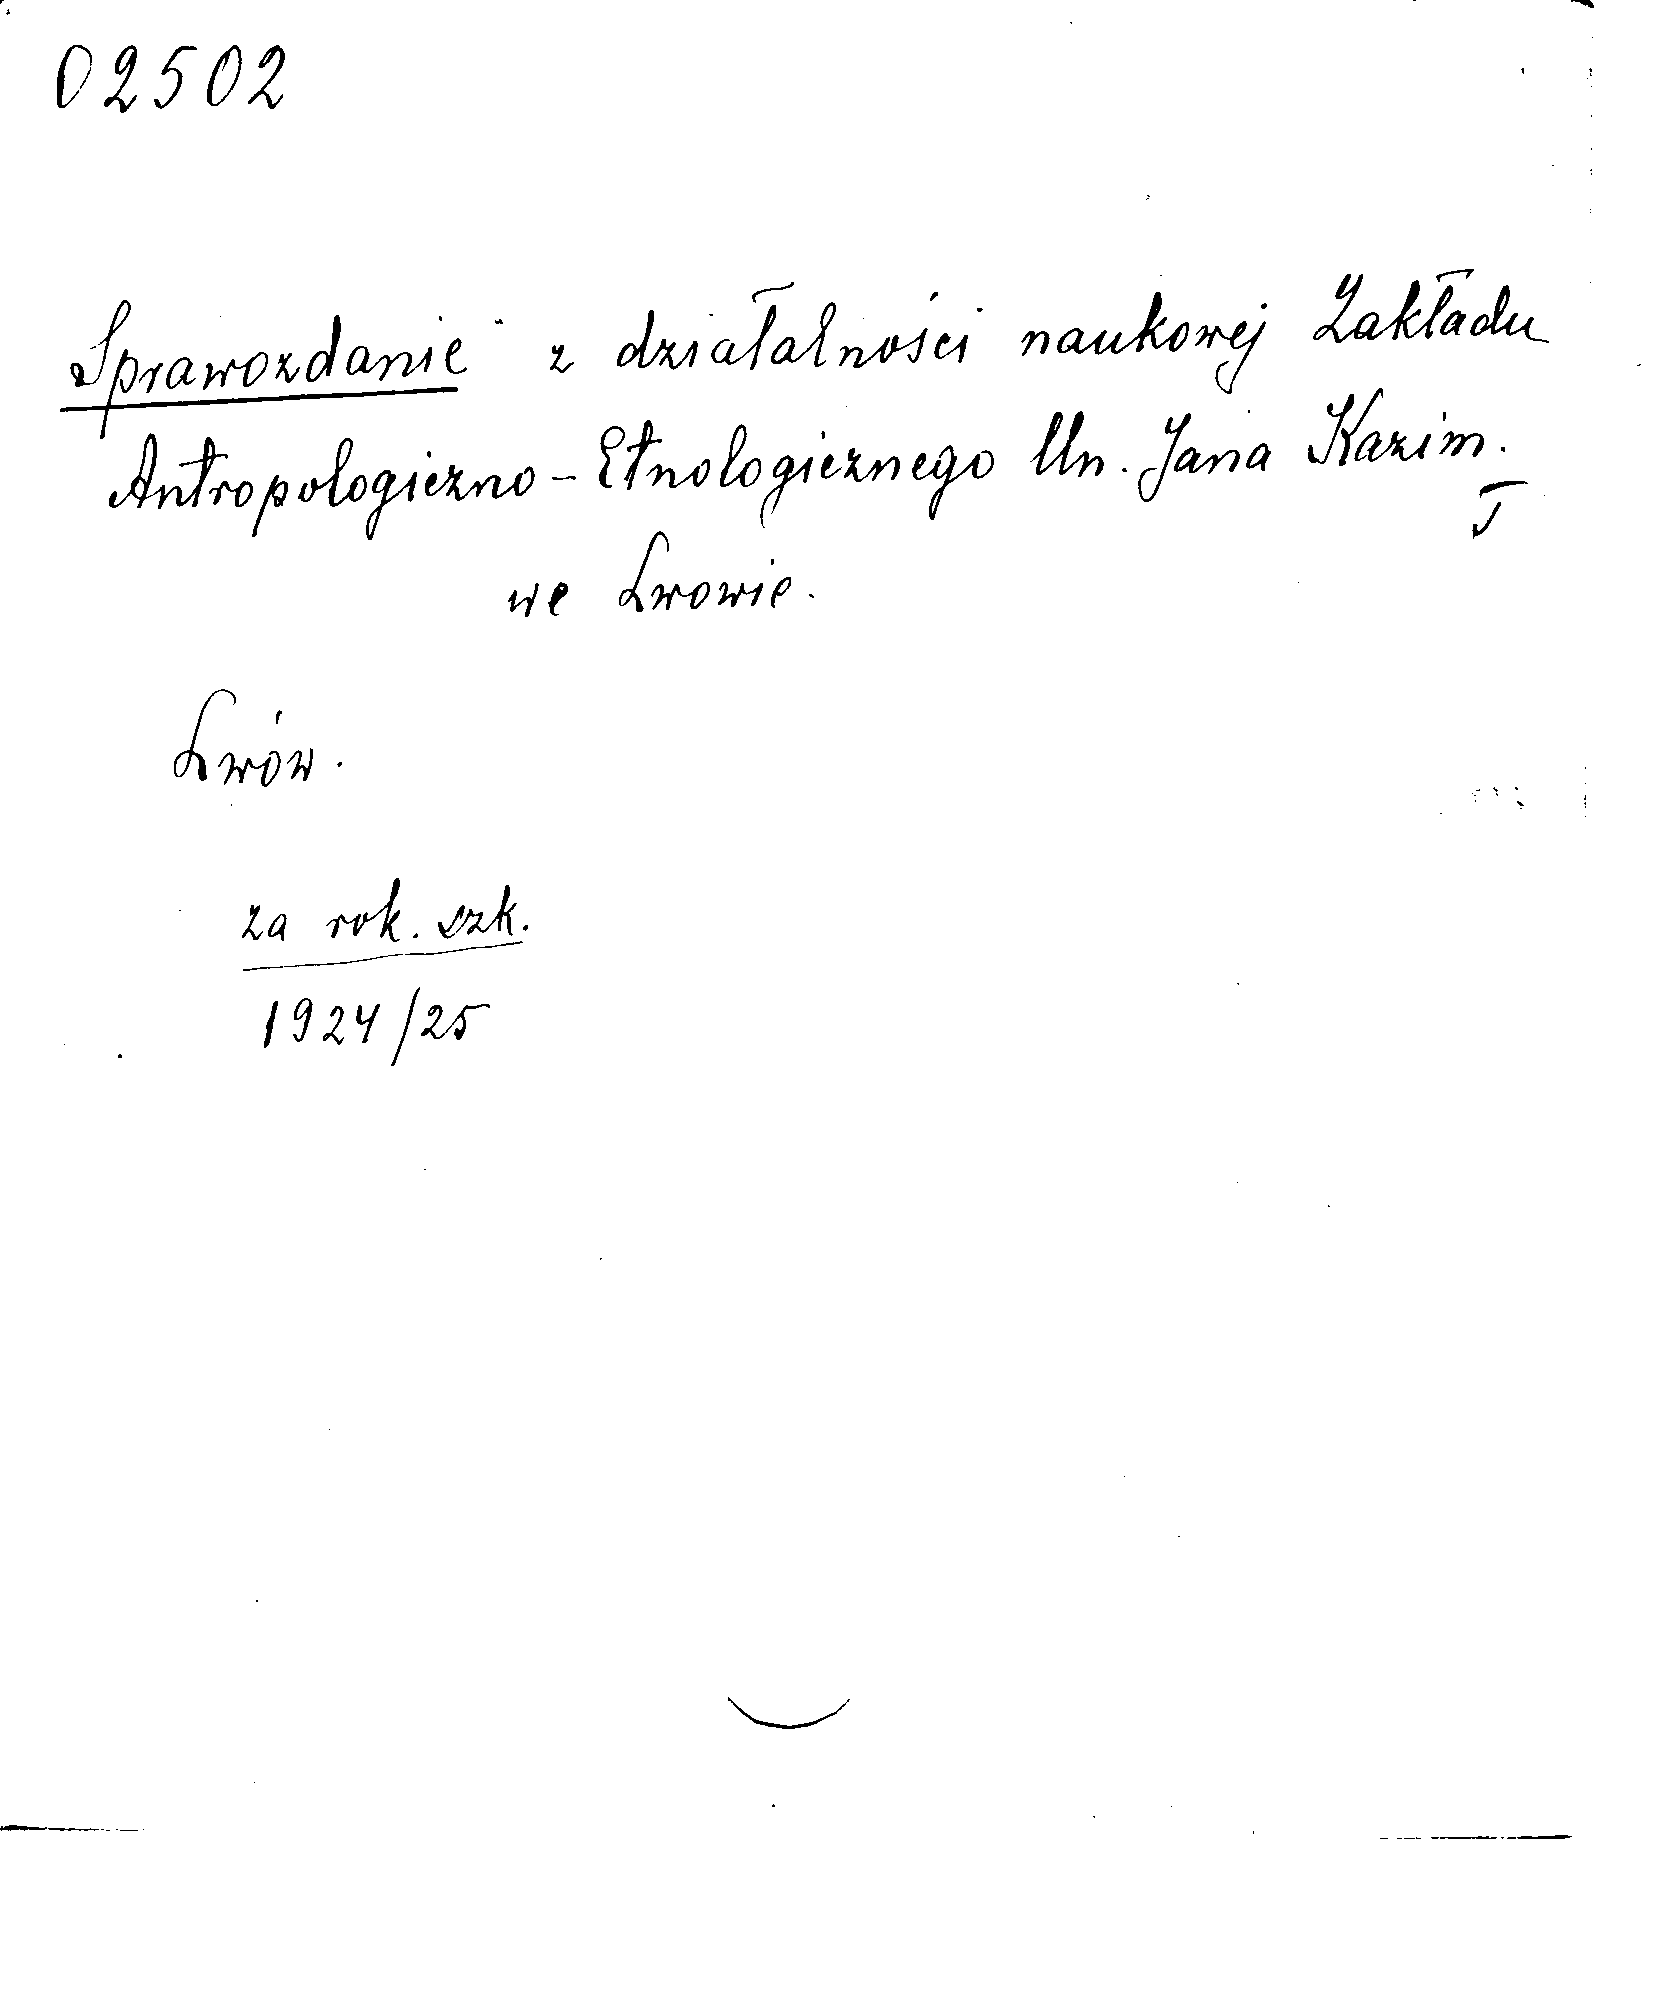 02502
Sprawozdanie z działalności naukowej Zakładu
Antropologiczno-Etnologicznego Un. Jana Kazim.
we Lwowie.
Lwów.
za rok. szk.
1924/25